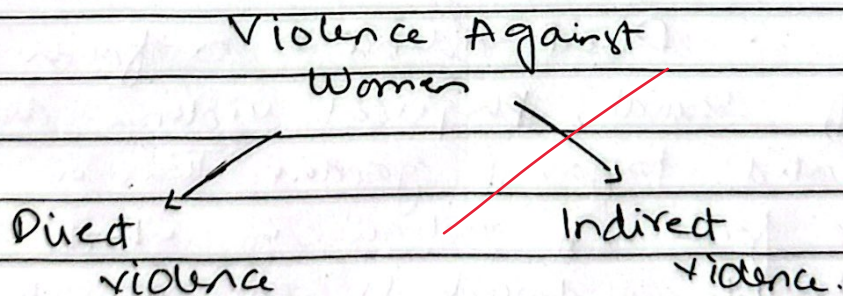 Violence Against
Women
Direct
violence
Indirect
violence.